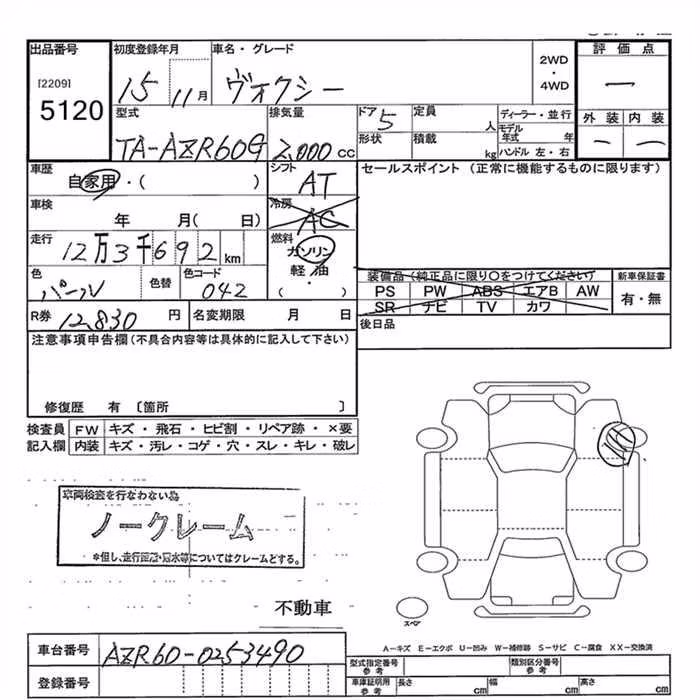 出品番号 初度登録年月 車名・グレード 評価点
[2209]
5120
15 11月 ヴォクシー
2WD
・
4WD
一
型式 排気量 ドア 定員 ディーラー・並行 外装 内装
TA-AZR60G 2,000 CC 5 人 モデル年式 年 一 一
形状 積載 kg ハンドル 左・右
車歴 シフト セールスポイント（正常に機能するものに限ります）
自家用・（ ） AT
車検 冷房
年 月（ 日） AC
走行 燃料
12万3千692km ガソリン
色 色替 色コード 軽油
パール 042 ・
（ ）
装備品（純正品に限り〇をつけてください） 新車保証書
PS PW ABS エアB AW 有・無
SR ナビ TV カワ
R券 12,830 円 名変期限 月 日 後日品
注意事項申告欄（不具合内容等は具体的に記入して下さい）
修復歴 有 〔箇所 〕
検査員 FW キズ・飛石・ヒビ割・リペア跡・×要
記入欄 内装 キズ・汚レ・コゲ・穴・スレ・キレ・破レ
車両検査を行なわない為
ノークレーム
※但し、走行距離・冠水等についてはクレームとする。
不動車
スペア
車台番号 AZR60-0253490
登録番号
A－キズ E－エクボ U－凹み W－補修跡 S－サビ C－腐食 XX－交換済
型式指定番号 参考 類別区分番号 参考
車庫証明用 参考 長さ cm 幅 cm 高さ cm